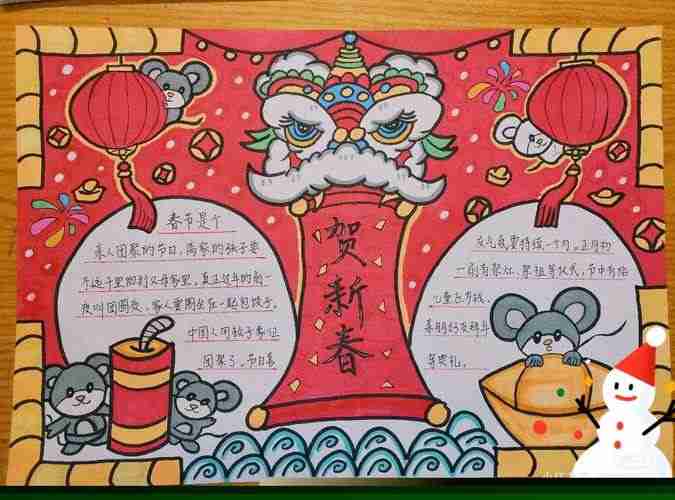 春节是个
亲人团聚的节日，离家的孩子要
不远千里回到父母家里，真正过年的前一
夜叫团圆夜，家人要围坐在一起包饺子，
中国人用饺子象征
团聚了。节日喜
贺新春
庆气氛要持续一个月。正月初
一前有祭灶、祭祖等仪式，节中有给
儿童压岁钱、
亲朋好友拜年
等典礼。